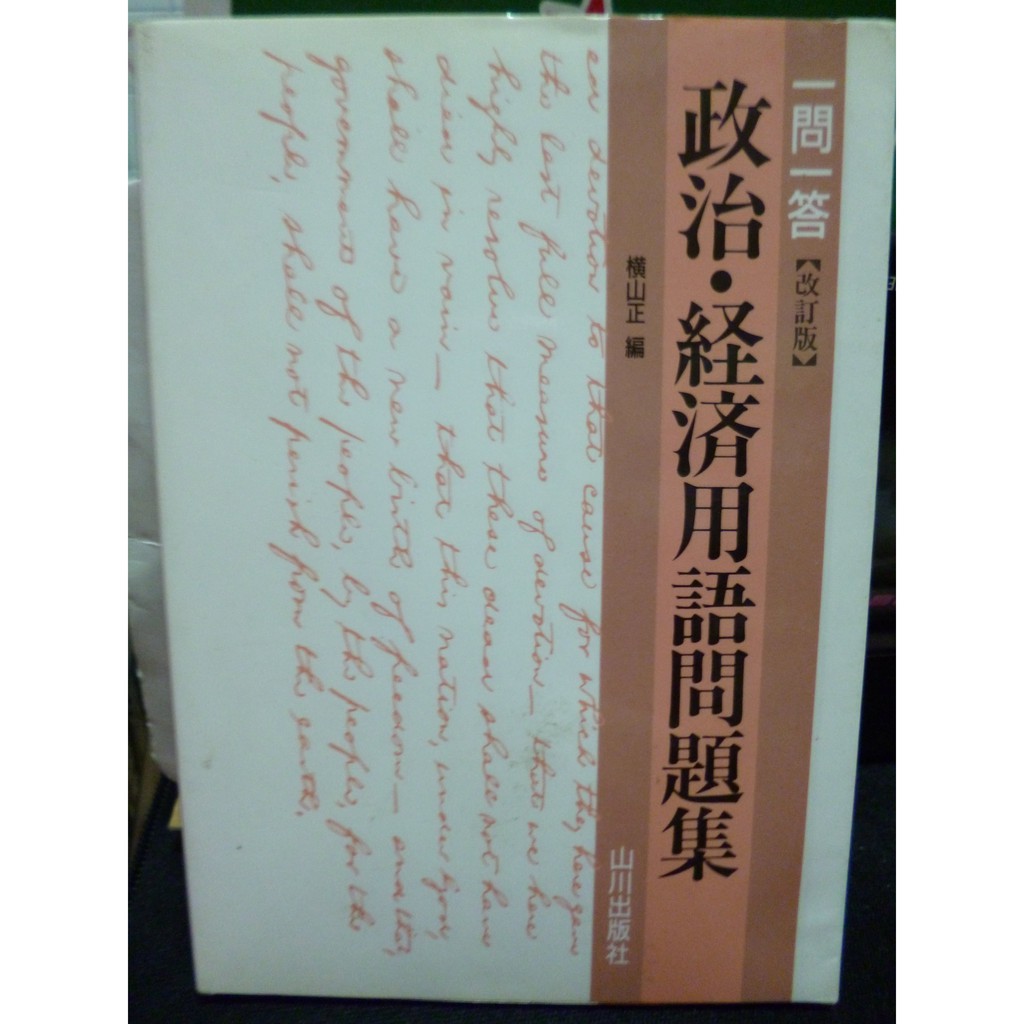 一問一答【改訂版】
政治・経済用語問題集
横山正 編
山川出版社
ed devotion to that cause for which they here gave
the last full measure of devotion — that we here
highly resolve that these dead shall not have
died in vain — that this nation, under God,
shall have a new birth of freedom — and that,
government of the people, by the people, for the
people, shall not perish from the earth.